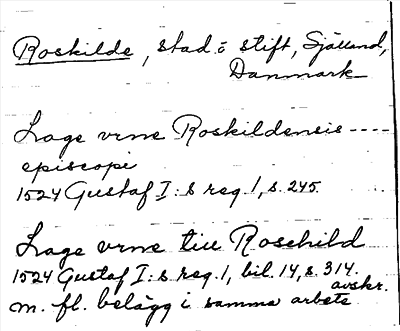 Roskilde, stad o stift, Sjätland,
Danmark
Lage vrne Roskildensis ----
episcopi
1524 Gustaf I:s reg. 1, s. 245.
Lage vrne till Roschild
1524 Gustaf I:s reg. 1, bil. 14, s. 314.
avskr.
m. fl. belägg i samma arbete